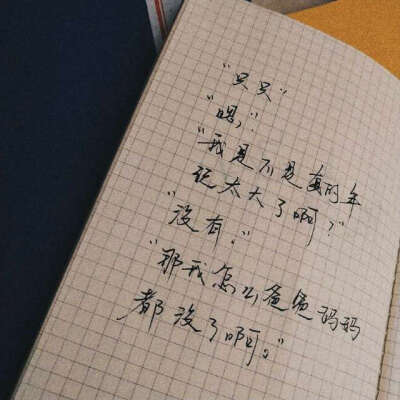 “只只”
“嗯，”
“我是不是真的年
纪太大了啊？”
“没有。”
“那我怎么爸爸妈妈
都没了啊。”